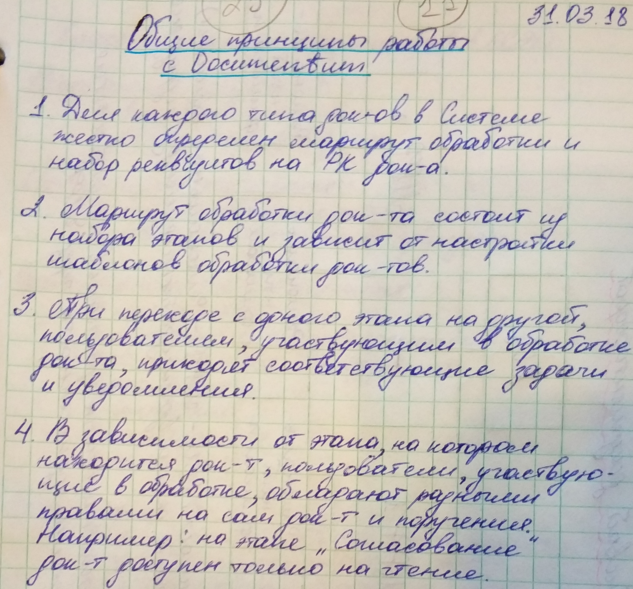 31.03.18
Общие принципы работы
с Documentum
1. Для каждого типа док-ов в Системе
жестко определен маршрут обработки и
набор реквизитов на РК док-а.
2. Маршрут обработки док-та состоит из
набора этапов и зависит от настройки
шаблонов обработки док-тов.
3. При переходе с одного этапа на другой,
пользователям, участвующим в обработке
док-та, приходят соответствующие задачи
и уведомления.
4. В зависимости от этапа, на котором
находится док-т, пользователи, участвую-
щие в обработке, обладают разными
правами на сам док-т и поручения.
Например: на этапе „Согласование"
док-т доступен только на чтение.